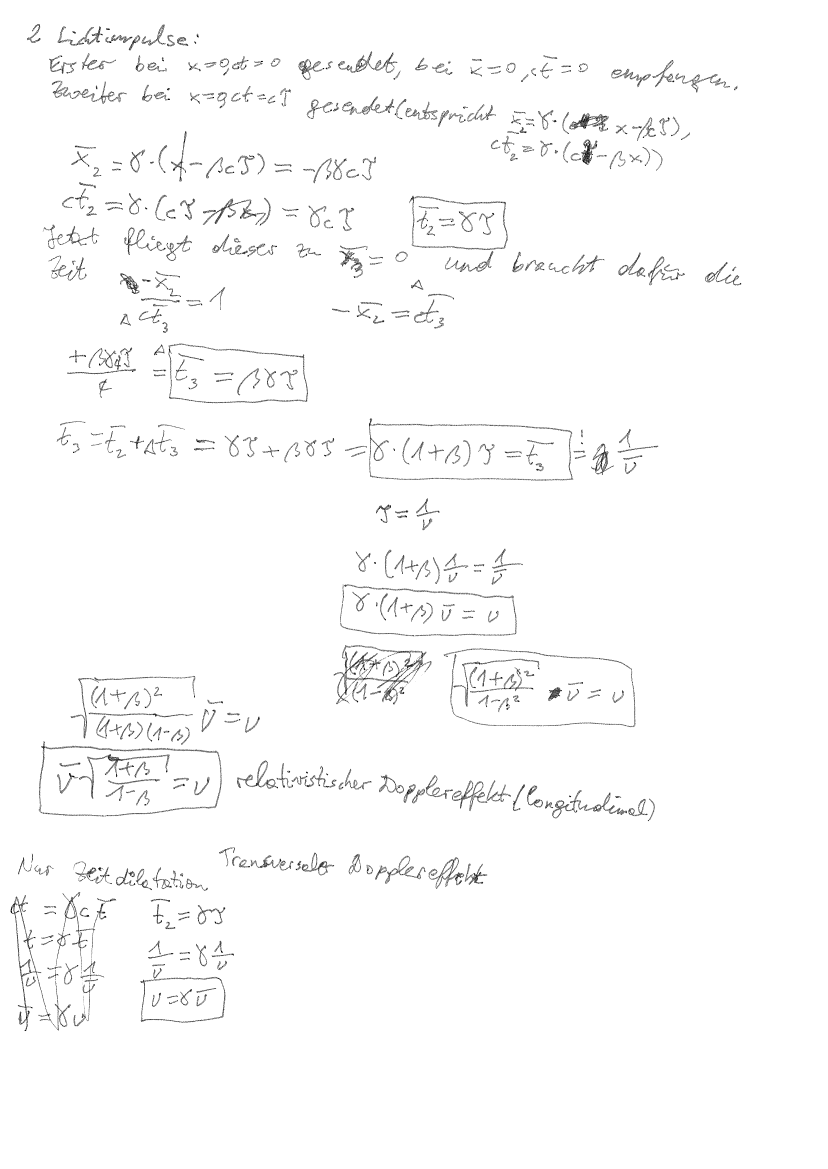 2 Lichtimpulse:
Erster bei x=0, ct=0 gesendet, bei x̄=0, ct̄=0 empfangen.
Zweiter bei x=0, ct=cτ gesendet (entspricht x̄₂=γ·(x-βcτ),
ct̄₂=γ·(cτ-βx))
x̄₂=γ·(x-βcτ)=-βγcτ
ct̄₂=γ·(cτ-βx)=γcτ t̄₂=γτ
Jetzt fliegt dieser zu x̄₃=0 und braucht dafür die
Zeit -x̄₂/Δct̄₃=1 -x̄₂=Δct̄₃
+βγcτ/c = Δt̄₃=βγτ
t̄₃=t̄₂+Δt̄₃=γτ+βγτ=γ·(1+β)τ=t̄₃ =! 1/ν̄
τ=1/ν
γ·(1+β)1/ν=1/ν̄
γ·(1+β)ν̄=ν
√((1+β)²/(1-β²))·ν̄=ν
√((1+β)²/((1+β)(1-β))) ν̄=ν
ν̄√((1+β)/(1-β))=ν relativistischer Dopplereffekt (longitudinal)
Nur Zeitdilatation Transversale Dopplereffekt
ct=γct̄ t̄₂=γτ
t=γt̄
1/ν=γ1/ν̄ 1/ν̄=γ1/ν
ν̄=γν ν=γν̄